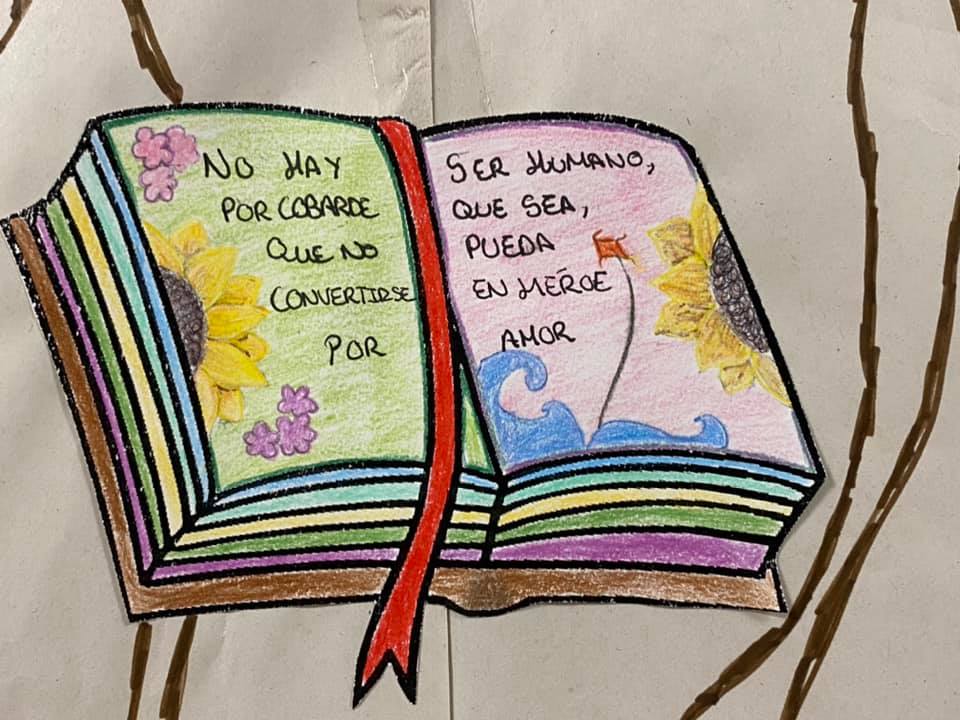 NO HAY SER HUMANO,
POR COBARDE QUE SEA,
QUE NO PUEDA
CONVERTIRSE EN HÉROE
POR AMOR